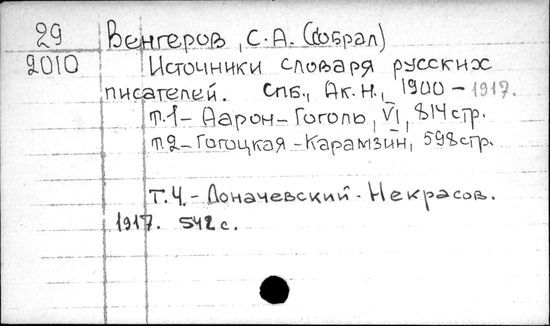 29 Венгеров, С.А. (собрал)
2010 Источники словаря русских
писателей. Спб., Ак.Н., 1900-1917.
т.1- Аарон-Гоголь, VI, 814стр.
т.2-Гогоцкая-Карамзин, 598стр.
Т.4.-Лоначевский-Некрасов.
1917. 542 с.